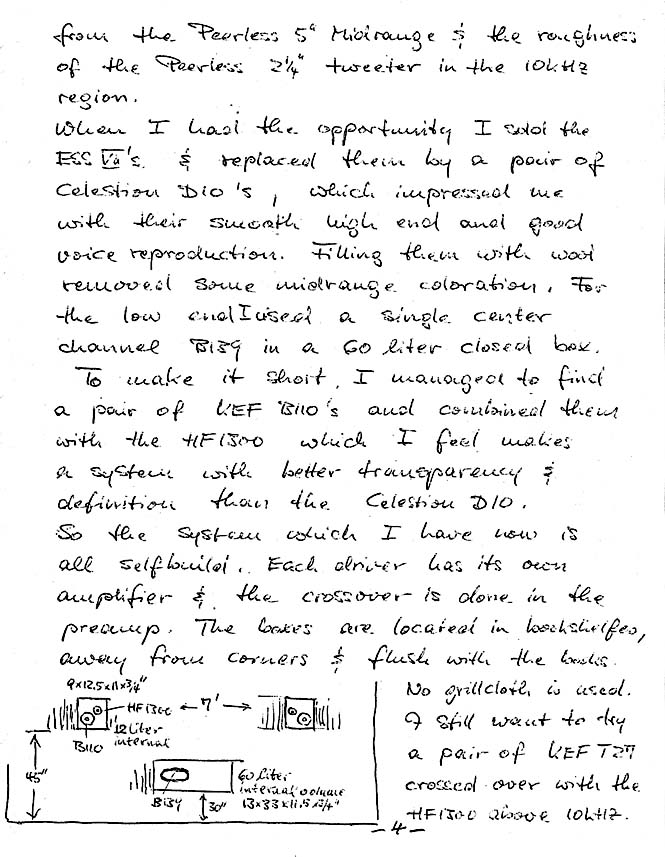 from the Peerless 5" Midrange & the roughness
of the Peerless 2¼" tweeter in the 10kHz
region.
When I had the opportunity I sold the
ESS Va's & replaced them by a pair of
Celestion D10's, which impressed me
with their smooth high end and good
voice reproduction. Filling them with wool
removed some midrange coloration. For
the low end I used a single center
channel B139 in a 60 liter closed box.
To make it short, I managed to find
a pair of KEF B110's and combined them
with the HF1300 which I feel makes
a system with better transparency &
definition than the Celestion D10.
So the system which I have now is
all selfbuild. Each driver has its own
amplifier & the crossover is done in the
preamp. The boxes are located in bookshelfes,
away from corners & flush with the books.
No grillcloth is used.
I still want to try
a pair of KEF T27
crossed over with the
HF1300 above 10kHz.
9x12.5x11x3/4"
HF1300
7'
12 liter
internal
B110
45"
60 liter
internal volume
13x33x11.5x3/4"
B139
30"
- 4 -